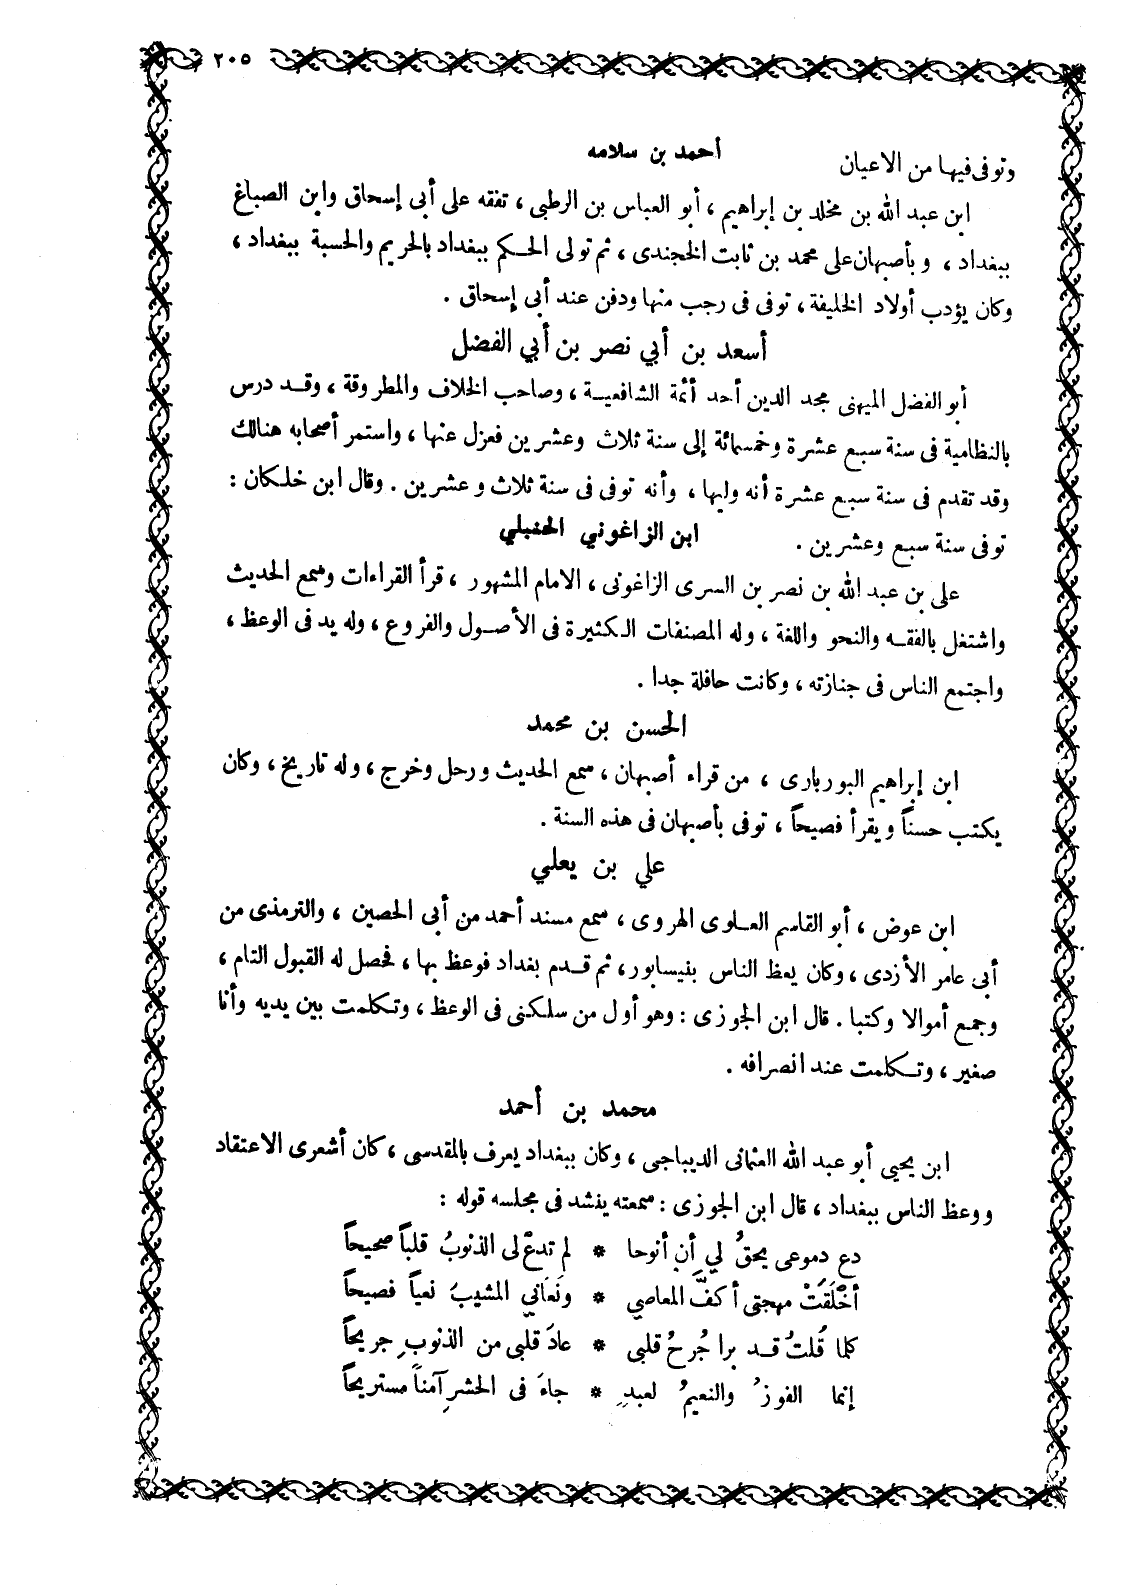 ٢٠٥
وتوفى فيها من الاعيان أحمد بن سلامه
ابن عبد الله بن مخلد بن إبراهيم ، أبو العباس بن الرطبى ، تفقه على أبى إسحاق وابن الصباغ
ببغداد ، وبأصبهان على محمد بن ثابت الخجندى ، ثم تولى الحكم ببغداد بالحريم والحسبة ببغداد ،
وكان يؤدب أولاد الخليفة ، توفى فى رجب منها ودفن عند أبى إسحاق .
أسعد بن أبي نصر بن أبي الفضل
أبو الفضل الميهنى مجد الدين أحد أئمة الشافعية ، وصاحب الخلاف والمطروقة ، وقد درس
بالنظامية فى سنة سبع عشرة وخمسمائة إلى سنة ثلاث وعشرين فعزل عنها ، واستمر أصحابه هنالك
وقد تقدم فى سنة سبع عشرة أنه وليها ، وأنه توفى فى سنة ثلاث وعشرين . وقال ابن خلكان :
توفى سنة سبع وعشرين . ابن الزاغوني الحنبلي
على بن عبد الله بن نصر بن السرى الزاغونى ، الامام المشهور ، قرأ القراءات وسمع الحديث
واشتغل بالفقه والنحو واللغة ، وله المصنفات الكثيرة فى الأصول والفروع ، وله يد فى الوعظ ،
واجتمع الناس فى جنازته ، وكانت حافلة جدا .
الحسن بن محمد
ابن إبراهيم البوربارى ، من قراء أصبهان ، سمع الحديث ورحل وخرج ، وله تاريخ ، وكان
يكتب حسناً ويقرأ فصيحاً ، توفى بأصبهان فى هذه السنة .
علي بن يعلي
ابن عوض ، أبو القاسم العلوى الهروى ، سمع مسند أحمد من أبى الحصين ، والترمذى من
أبى عامر الأزدى ، وكان يعظ الناس بنيسابور ، ثم قدم بغداد فوعظ بها ، فحصل له القبول التام ،
وجمع أموالا وكتبا . قال ابن الجوزى : وهو أول من سلكنى فى الوعظ ، وتكلمت بين يديه وأنا
صغير ، وتكلمت عند انصرافه .
محمد بن أحمد
ابن يحيى أبو عبد الله العثمانى الديباجى ، وكان ببغداد يعرف بالمقدسى ، كان أشعرى الاعتقاد
ووعظ الناس ببغداد ، قال ابن الجوزى : سمعته ينشد فى مجلسه قوله :
دع دموعى يحقُ لي أن أنوحا * لم تدعْ لى الذنوبُ قلباً صحيحاً
أخْلَقَتْ مهجتى أكفَّ المعاصي * ونَعَاني المشيبُ نعياً فصيحاً
كلما قُلتُ قد برا جُرحُ قلبى * عادَ قلبى من الذنوبِ جريحاً
إنما الفوزُ والنعيمُ لعبدٍ * جاءَ فى الحشرِ آمناً مستريحاً